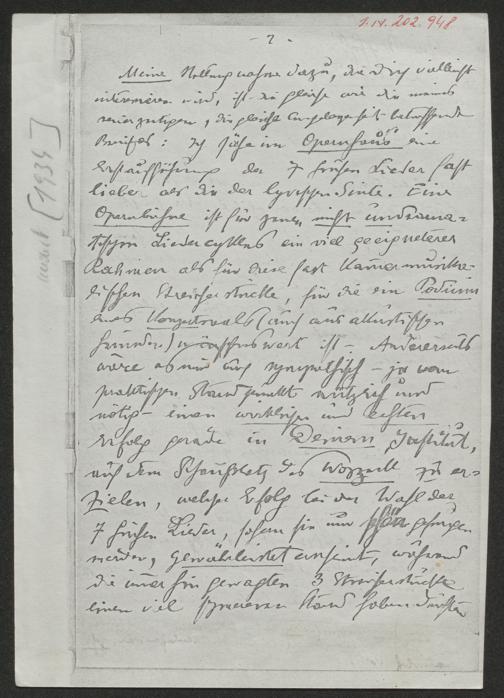 1.N.202.948
- 2 -
[1934]
Meine Stellungnahme dazu, die Dich vielleicht
interessieren wird, ist die gleiche wie die meines
die gleiche Angelegenheit betreffende
Briefes: Ich sähe im Opernhaus eine
Erstaufführung der 7 frühen Lieder fast
lieber als die der lyrischen Suite. Eine
Opernbühne ist für jenen nicht undrama-
tischen Liedercyklus ein viel geeigneterer
Rahmen als für diese fast kammermusika-
lischen Streicherstücke, für die ein Podium
eines Konzertsaals (auch aus akustischen
Gründen) wünschenswert ist - Andererseits
wäre es mir auch sympathisch - ja vom
praktischen Standpunkt nützlich und
nötig - einen wirklichen und echten
Erfolg grade in Deinem Institut,
auf dem Schauplatz des Wozzeck zu er-
zielen, welcher Erfolg bei der Wahl der
7 frühen Lieder, sofern sie nur schön gesungen
werden, gewährleistet erscheint, während
die immerhin gewagten 3 Streicherstücke
einen viel schwereren Stand haben dürften